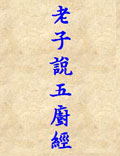 老子說五廚經